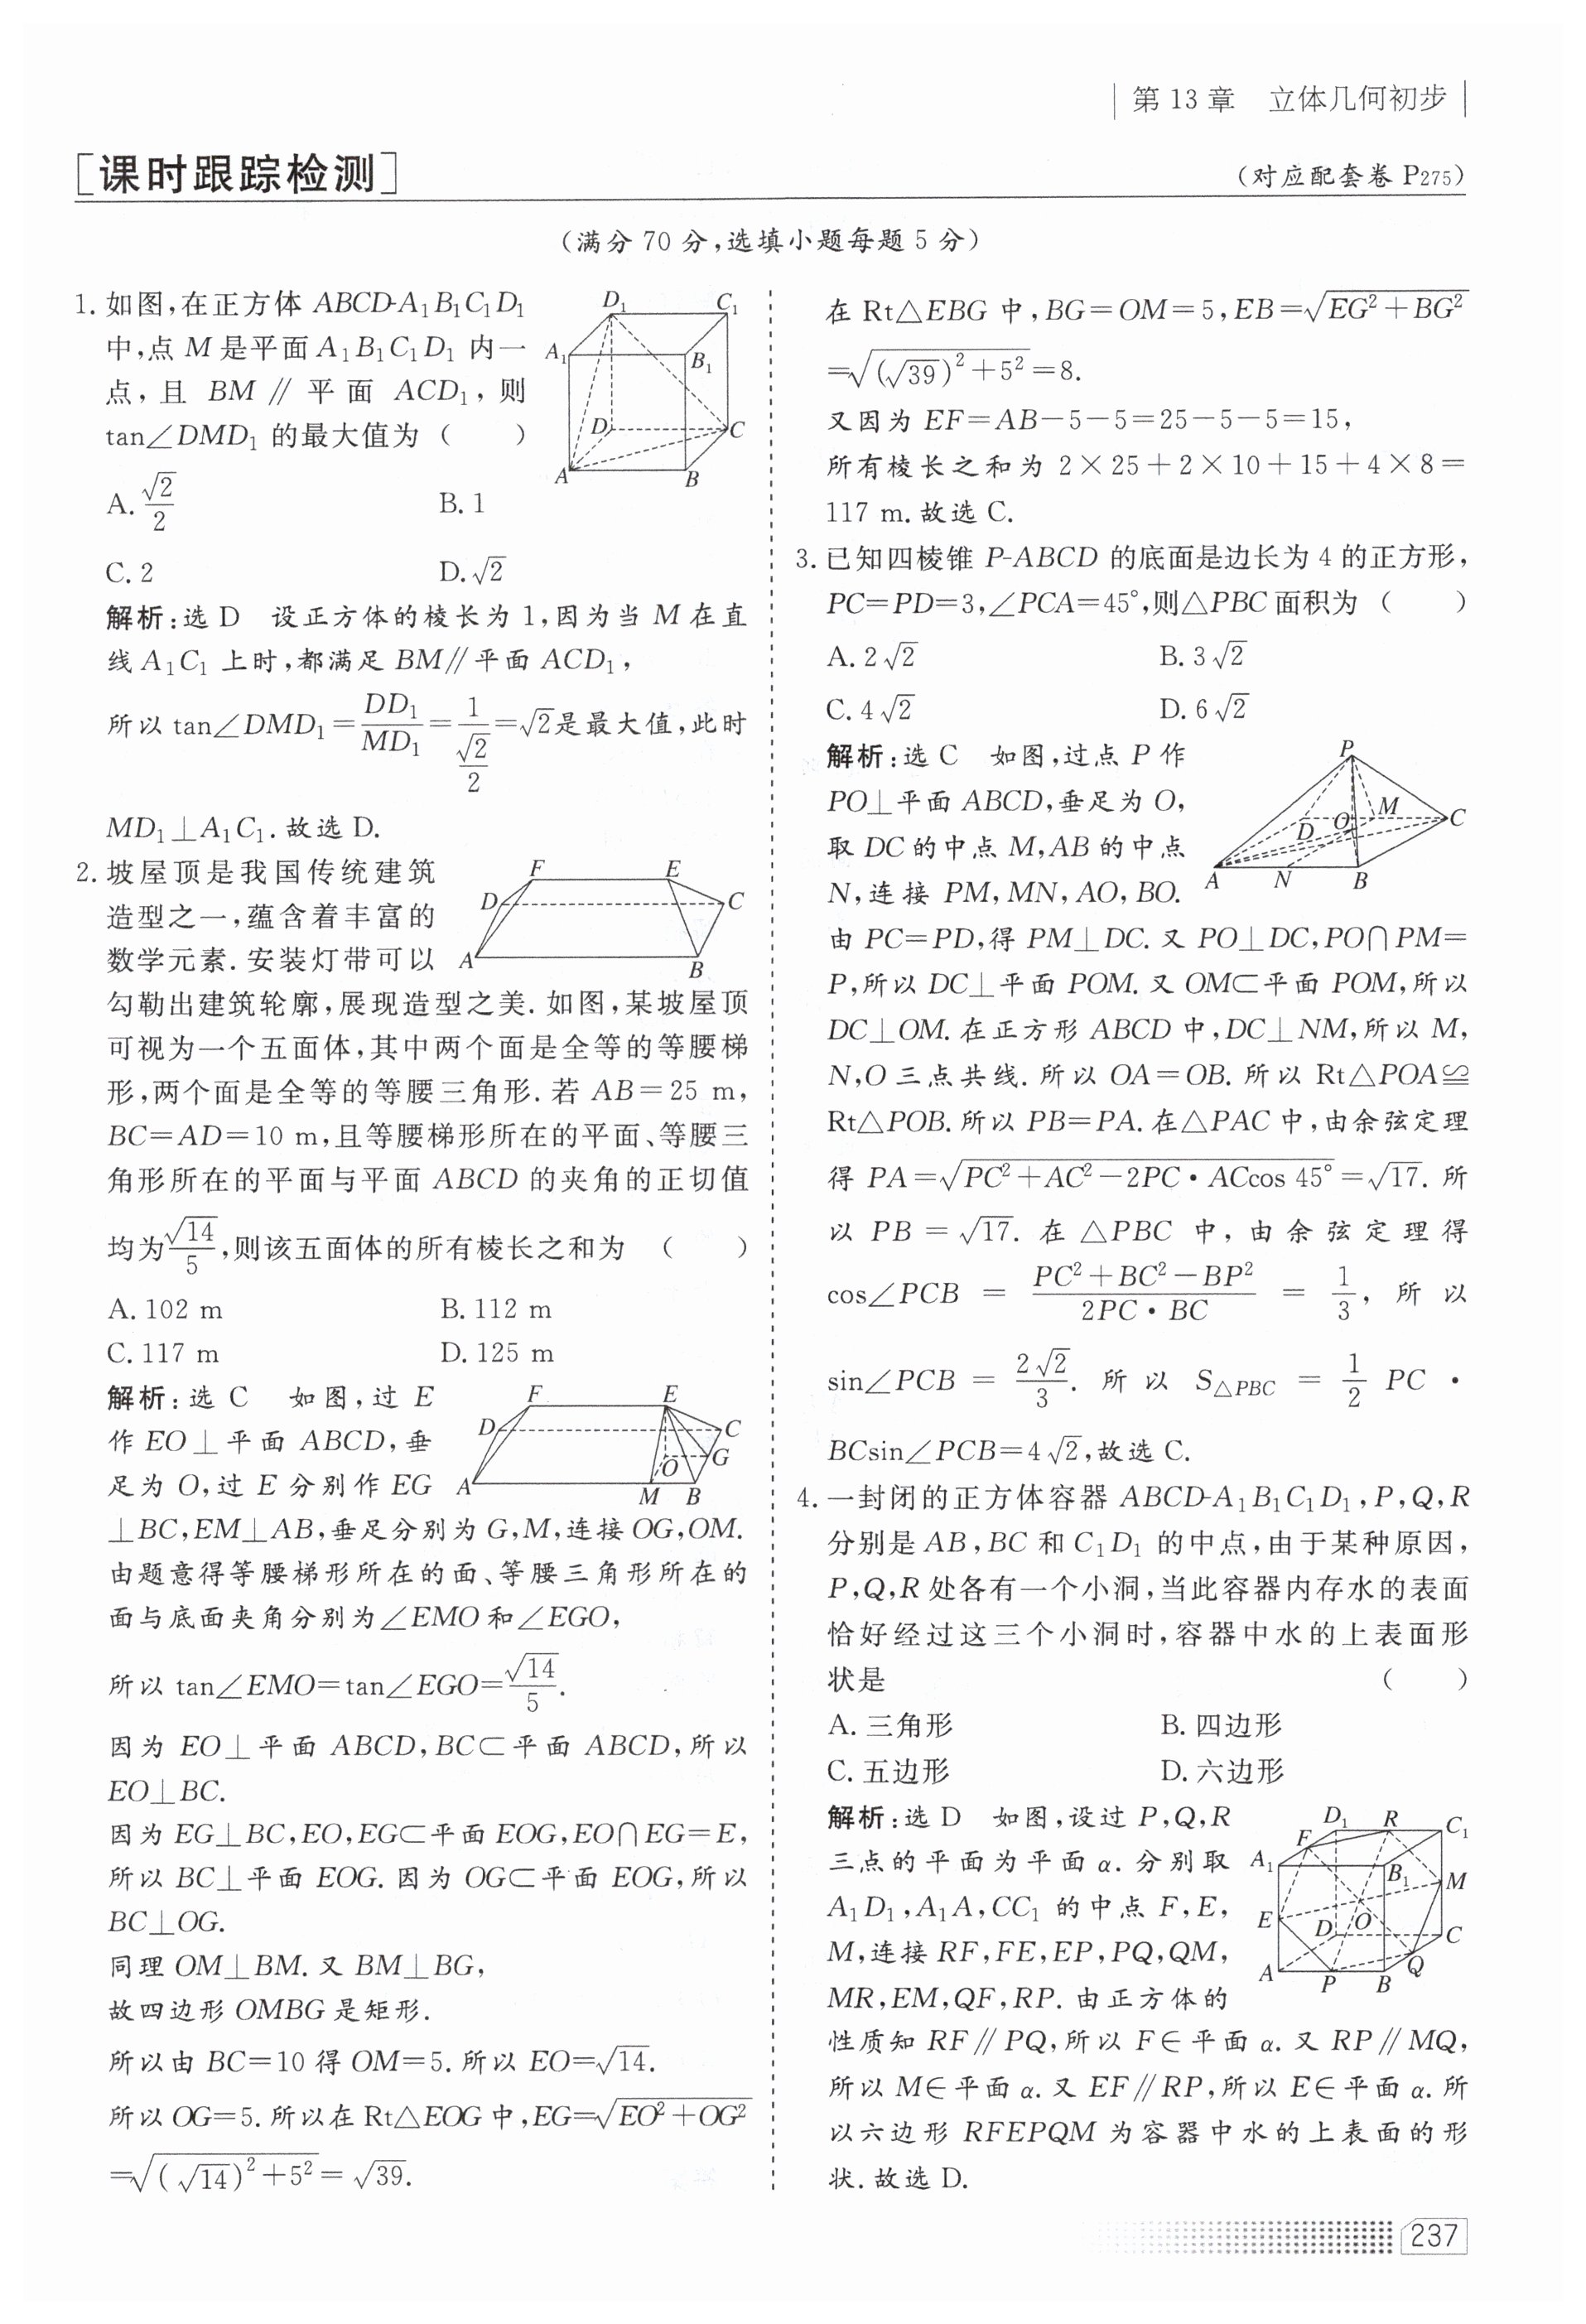 第 13 章 立体几何初步
[课时跟踪检测]
(对应配套卷 P275)
(满分 70 分,选填小题每题 5 分)
1. 如图,在正方体 ABCD-A₁B₁C₁D₁
中,点 M 是平面 A₁B₁C₁D₁ 内一
点,且 BM∥平面 ACD₁,则
tan∠DMD₁ 的最大值为 ( )
A. √2/2 B. 1
C. 2 D. √2
D₁ C₁
A₁ B₁
D C
A B
解析:选 D 设正方体的棱长为 1,因为当 M 在直
线 A₁C₁ 上时,都满足 BM∥平面 ACD₁,
所以 tan∠DMD₁=DD₁/MD₁=1/(√2/2)=√2是最大值,此时
MD₁⊥A₁C₁. 故选 D.
2. 坡屋顶是我国传统建筑
造型之一,蕴含着丰富的
数学元素. 安装灯带可以
F E
D C
A B
勾勒出建筑轮廓,展现造型之美. 如图,某坡屋顶
可视为一个五面体,其中两个面是全等的等腰梯
形,两个面是全等的等腰三角形. 若 AB=25 m,
BC=AD=10 m,且等腰梯形所在的平面、等腰三
角形所在的平面与平面 ABCD 的夹角的正切值
均为√14/5,则该五面体的所有棱长之和为 ( )
A. 102 m B. 112 m
C. 117 m D. 125 m
解析:选 C 如图,过 E
作 EO⊥平面 ABCD,垂
足为 O,过 E 分别作 EG
F E
D C
O G
A M B
⊥BC,EM⊥AB,垂足分别为 G,M,连接 OG,OM.
由题意得等腰梯形所在的面、等腰三角形所在的
面与底面夹角分别为∠EMO和∠EGO,
所以 tan∠EMO=tan∠EGO=√14/5.
因为 EO⊥平面 ABCD,BC⊂平面 ABCD,所以
EO⊥BC.
因为 EG⊥BC,EO,EG⊂平面 EOG,EO∩EG=E,
所以 BC⊥平面 EOG. 因为 OG⊂平面 EOG,所以
BC⊥OG.
同理 OM⊥BM. 又 BM⊥BG,
故四边形 OMBG 是矩形.
所以由 BC=10 得 OM=5. 所以 EO=√14.
所以 OG=5. 所以在 Rt△EOG 中,EG=√(EO²+OG²)
=√((√14)²+5²)=√39.
在 Rt△EBG 中,BG=OM=5,EB=√(EG²+BG²)
=√((√39)²+5²)=8.
又因为 EF=AB-5-5=25-5-5=15,
所有棱长之和为 2×25+2×10+15+4×8=
117 m. 故选 C.
3. 已知四棱锥 P-ABCD 的底面是边长为 4 的正方形,
PC=PD=3,∠PCA=45°,则△PBC面积为 ( )
A. 2√2 B. 3√2
C. 4√2 D. 6√2
解析:选 C 如图,过点 P 作
PO⊥平面 ABCD,垂足为 O,
取 DC的中点 M,AB 的中点
N,连接 PM,MN,AO,BO.
P
D O M C
A N B
由 PC=PD,得 PM⊥DC. 又 PO⊥DC,PO∩PM=
P,所以 DC⊥平面 POM. 又 OM⊂平面 POM,所以
DC⊥OM. 在正方形 ABCD 中,DC⊥NM,所以 M,
N,O 三点共线. 所以 OA=OB. 所以 Rt△POA≌
Rt△POB. 所以 PB=PA. 在△PAC 中,由余弦定理
得 PA=√(PC²+AC²-2PC·ACcos 45°)=√17. 所
以 PB=√17. 在△PBC 中,由余弦定理得
cos∠PCB=(PC²+BC²-BP²)/(2PC·BC)=1/3,所以
sin∠PCB=2√2/3. 所以 S△PBC=1/2 PC·
BCsin∠PCB=4√2,故选 C.
4. 一封闭的正方体容器 ABCD-A₁B₁C₁D₁,P,Q,R
分别是 AB,BC 和 C₁D₁ 的中点,由于某种原因,
P,Q,R 处各有一个小洞,当此容器内存水的表面
恰好经过这三个小洞时,容器中水的上表面形
状是 ( )
A. 三角形 B. 四边形
C. 五边形 D. 六边形
解析:选 D 如图,设过 P,Q,R
三点的平面为平面 α. 分别取
A₁D₁,A₁A,CC₁ 的中点 F,E,
M,连接 RF,FE,EP,PQ,QM,
MR,EM,QF,RP. 由正方体的
D₁ R C₁
F
A₁ B₁ M
E D O C
A P B Q
性质知 RF∥PQ,所以 F∈平面 α. 又 RP∥MQ,
所以 M∈平面 α. 又 EF∥RP,所以 E∈平面 α. 所
以六边形 RFEPQM 为容器中水的上表面的形
状. 故选 D.
237